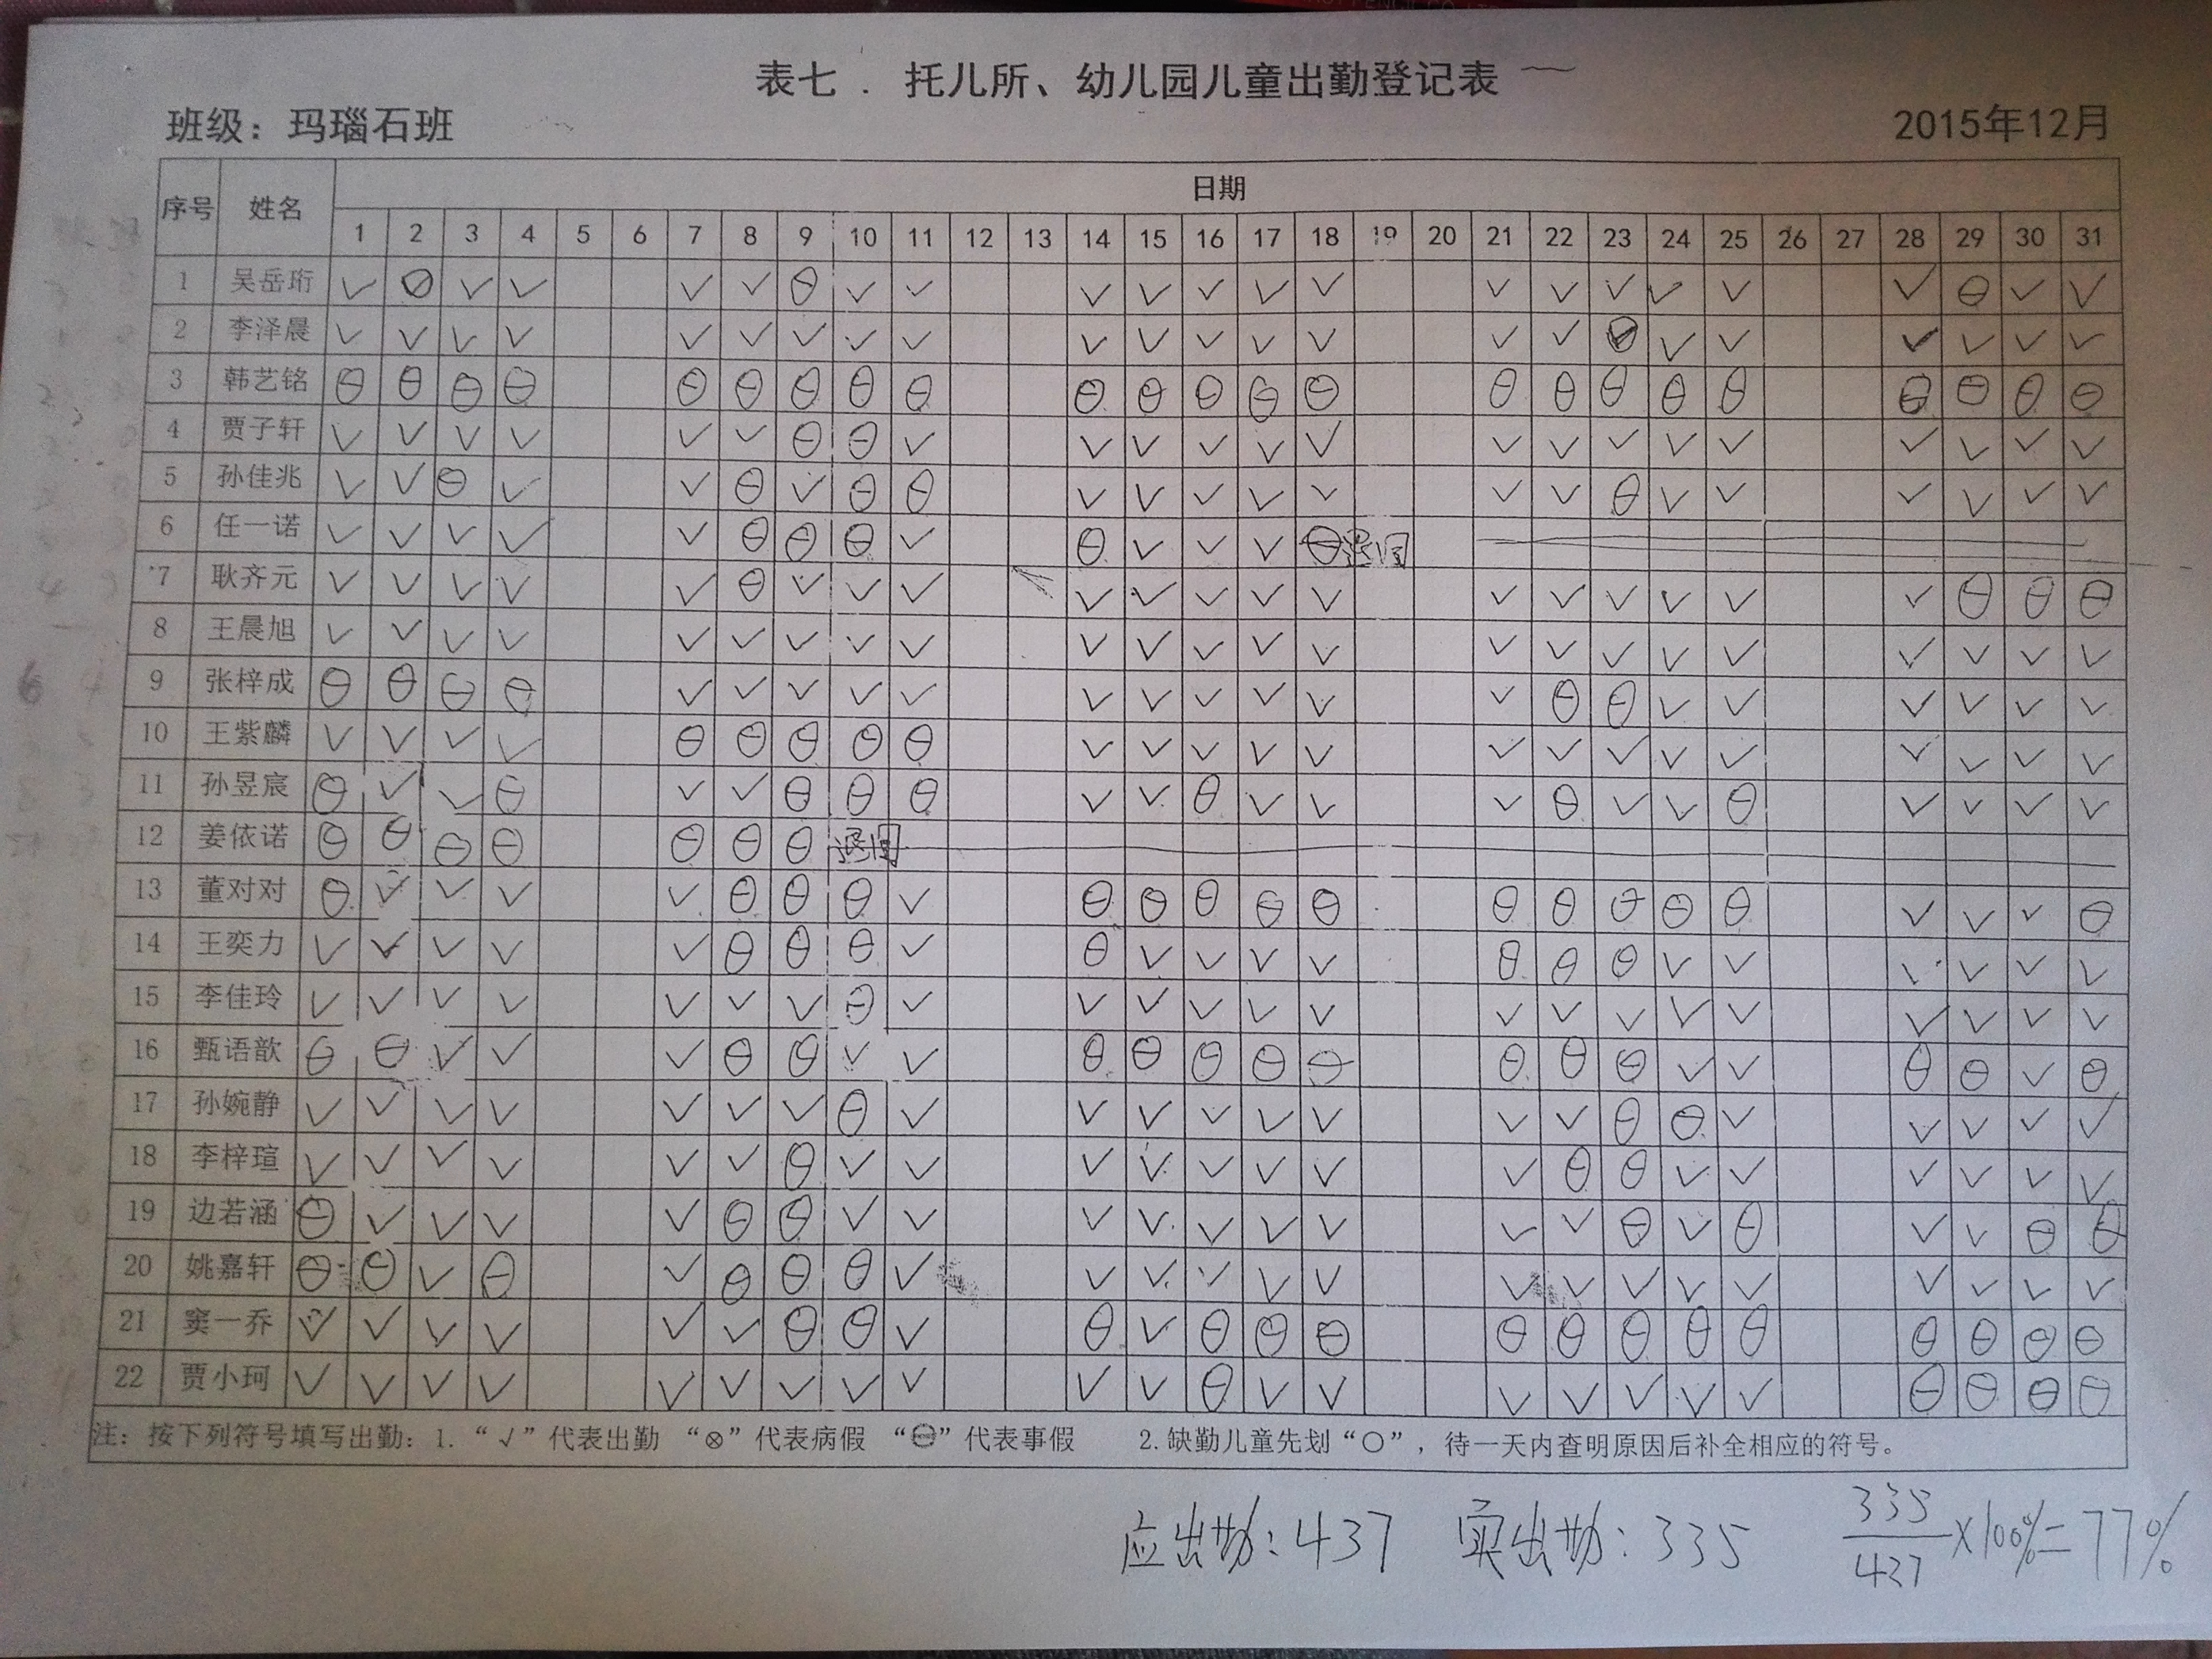 表七 . 托儿所、幼儿园儿童出勤登记表
班级：玛瑙石班 2015年12月
序号 姓名 日期
1 2 3 4 5 6 7 8 9 10 11 12 13 14 15 16 17 18 19 20 21 22 23 24 25 26 27 28 29 30 31
1 吴岳珩 √ ⊖ √ √ √ √ ⊖ √ √ √ √ √ √ √ √ √ √ √ √ √ ⊖ √ √
2 李泽晨 √ √ √ √ √ √ √ √ √ √ √ √ √ √ √ √ √ √ √ √ √ √
3 韩艺铭 ⊖ ⊖ ⊖ ⊖ ⊖ ⊖ ⊖ ⊖ ⊖ ⊖ ⊖ ⊖ ⊖ ⊖ ⊖ ⊖ ⊖ ⊖ ⊖ ⊖ ⊖ ⊖ ⊖
4 贾子轩 √ √ √ √ √ √ ⊖ ⊖ √ √ √ √ √ √ √ √ √ √ √ √ √ √ √
5 孙佳兆 √ √ ⊖ √ √ ⊖ √ ⊖ ⊖ √ √ √ √ √ √ √ ⊖ √ √ √ √ √ √
6 任一诺 √ √ √ √ √ ⊖ ⊖ ⊖ √ ⊖ √ √ √ ⊖ 退园
7 耿齐元 √ √ √ √ √ ⊖ √ √ √ √ √ √ √ √ √ √ √ √ √ √ ⊖ ⊖ ⊖
8 王晨旭 √ √ √ √ √ √ √ √ √ √ √ √ √ √ √ √ √ √ √ √ √ √ √
9 张梓成 ⊖ ⊖ ⊖ ⊖ √ √ √ √ √ √ √ √ √ √ √ ⊖ ⊖ √ √ √ √ √ √
10 王紫麟 √ √ √ √ ⊖ ⊖ ⊖ ⊖ ⊖ √ √ √ √ √ √ √ √ √ √ √ √ √ √
11 孙昱宸 ⊖ √ √ ⊖ √ √ ⊖ ⊖ ⊖ √ √ ⊖ √ √ √ ⊖ √ √ ⊖ √ √ √ √
12 姜依诺 ⊖ ⊖ ⊖ ⊖ ⊖ ⊖ ⊖ 退园
13 董对对 ⊖ √ √ √ √ ⊖ ⊖ ⊖ √ ⊖ ⊖ ⊖ ⊖ ⊖ ⊖ ⊖ ⊖ ⊖ ⊖ √ √ √ ⊖
14 王奕力 √ √ √ √ √ ⊖ ⊖ ⊖ √ ⊖ √ √ √ √ ⊖ ⊖ ⊖ √ √ √ √ √ √
15 李佳玲 √ √ √ √ √ √ √ ⊖ √ √ √ √ √ √ √ √ √ √ √ √ √ √ √
16 甄语歆 ⊖ ⊖ √ √ √ ⊖ ⊖ √ √ ⊖ ⊖ ⊖ ⊖ ⊖ ⊖ ⊖ ⊖ √ √ ⊖ ⊖ √ ⊖
17 孙婉静 √ √ √ √ √ √ √ ⊖ √ √ √ √ √ √ √ √ ⊖ ⊖ √ √ √ √ √
18 李梓瑄 √ √ √ √ √ √ ⊖ √ √ √ √ √ √ √ √ ⊖ ⊖ √ √ √ √ √ √
19 边若涵 ⊖ √ √ √ √ ⊖ ⊖ √ √ √ √ √ √ √ √ √ ⊖ √ ⊖ √ √ ⊖ ⊖
20 姚嘉轩 ⊖ ⊖ √ ⊖ √ ⊖ ⊖ ⊖ √ √ √ √ √ √ √ √ √ √ √ √ √ √ √
21 窦一乔 √ √ √ √ √ √ ⊖ ⊖ √ ⊖ √ ⊖ ⊖ ⊖ ⊖ ⊖ ⊖ ⊖ ⊖ ⊖ ⊖ ⊖ ⊖
22 贾小珂 √ √ √ √ √ √ √ √ √ √ √ ⊖ √ √ √ √ √ √ √ ⊖ ⊖ ⊖ ⊖
注：按下列符号填写出勤：1.“√”代表出勤 “⊗”代表病假 “⊖”代表事假 2.缺勤儿童先划“○”，待一天内查明原因后补全相应的符号。
应出勤：437 实出勤：335 335/437×100%=77%